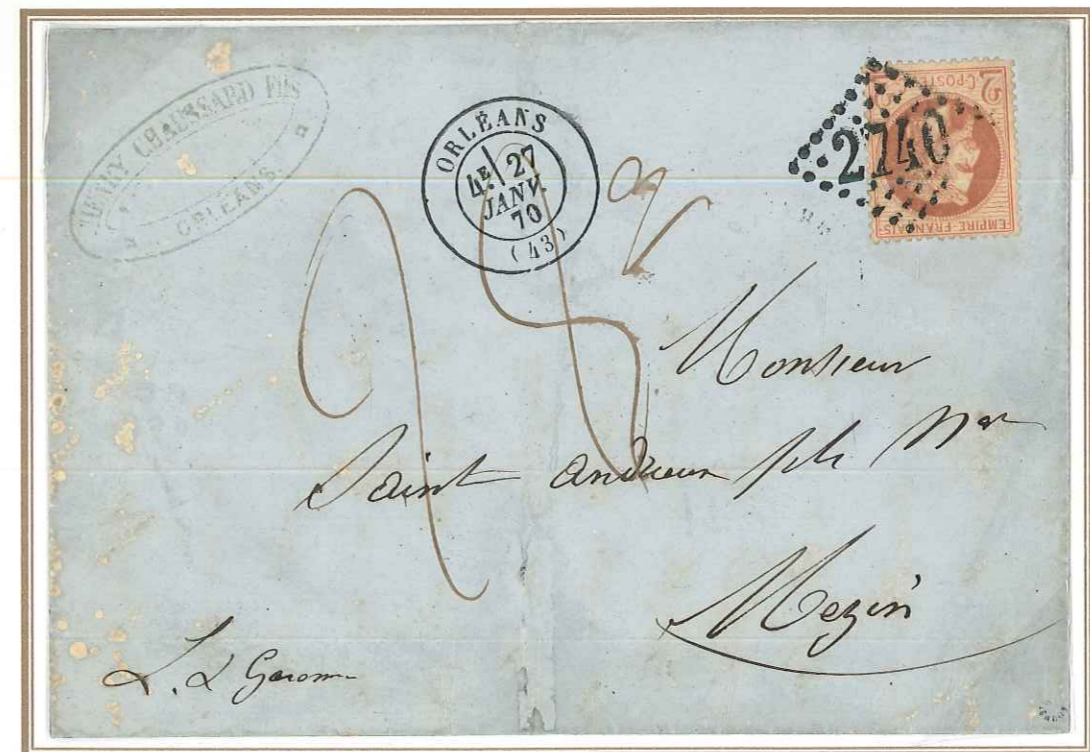 HENRY CHAUSSARD FILS
ORLEANS
ORLÉANS
4E 27
JANV.
70
(43)
2740
2
C-POSTE
EMPIRE-FRANÇAIS
Monsieur
Saint andrieux fils
Mezin
L. & Garonne